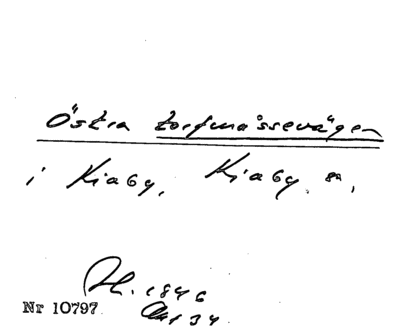 Östra torfmossevägen
i Kiaby, Kiaby sn,
Nr 10797
1846
34